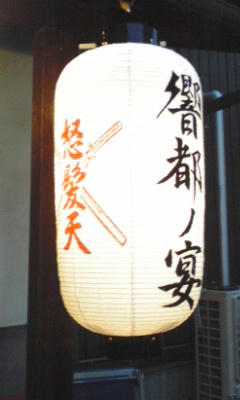 響都ノ宴
怒髪天